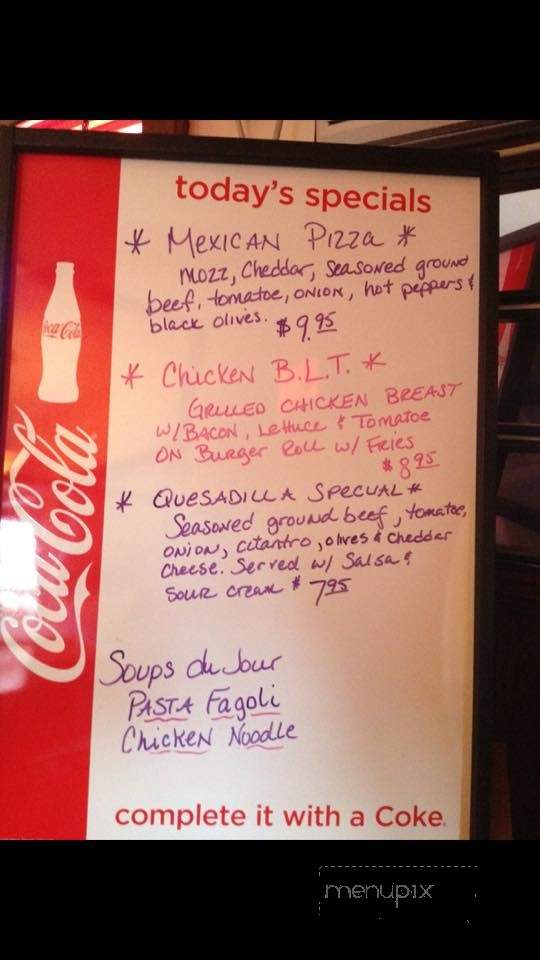 today's specials
* MEXICAN PIZZA *
MOZZ, Cheddar, Seasoned ground
beef, tomatoe, ONION, hot peppers &
black olives. $9.95
* Chicken B.L.T. *
GRILLED CHICKEN BREAST
W/BACON, Lettuce & Tomatoe
ON Burger Roll w/ Fries
$8.95
* QUESADILLA SPECIAL *
Seasoned ground beef, tomatoe,
ONION, cilantro, olives & cheddar
cheese. Served w/ Salsa &
Sour cream $7.95
Soups du Jour
PASTA Fagoli
Chicken Noodle
complete it with a Coke.
Coca-Cola
Coca-Cola
menupix